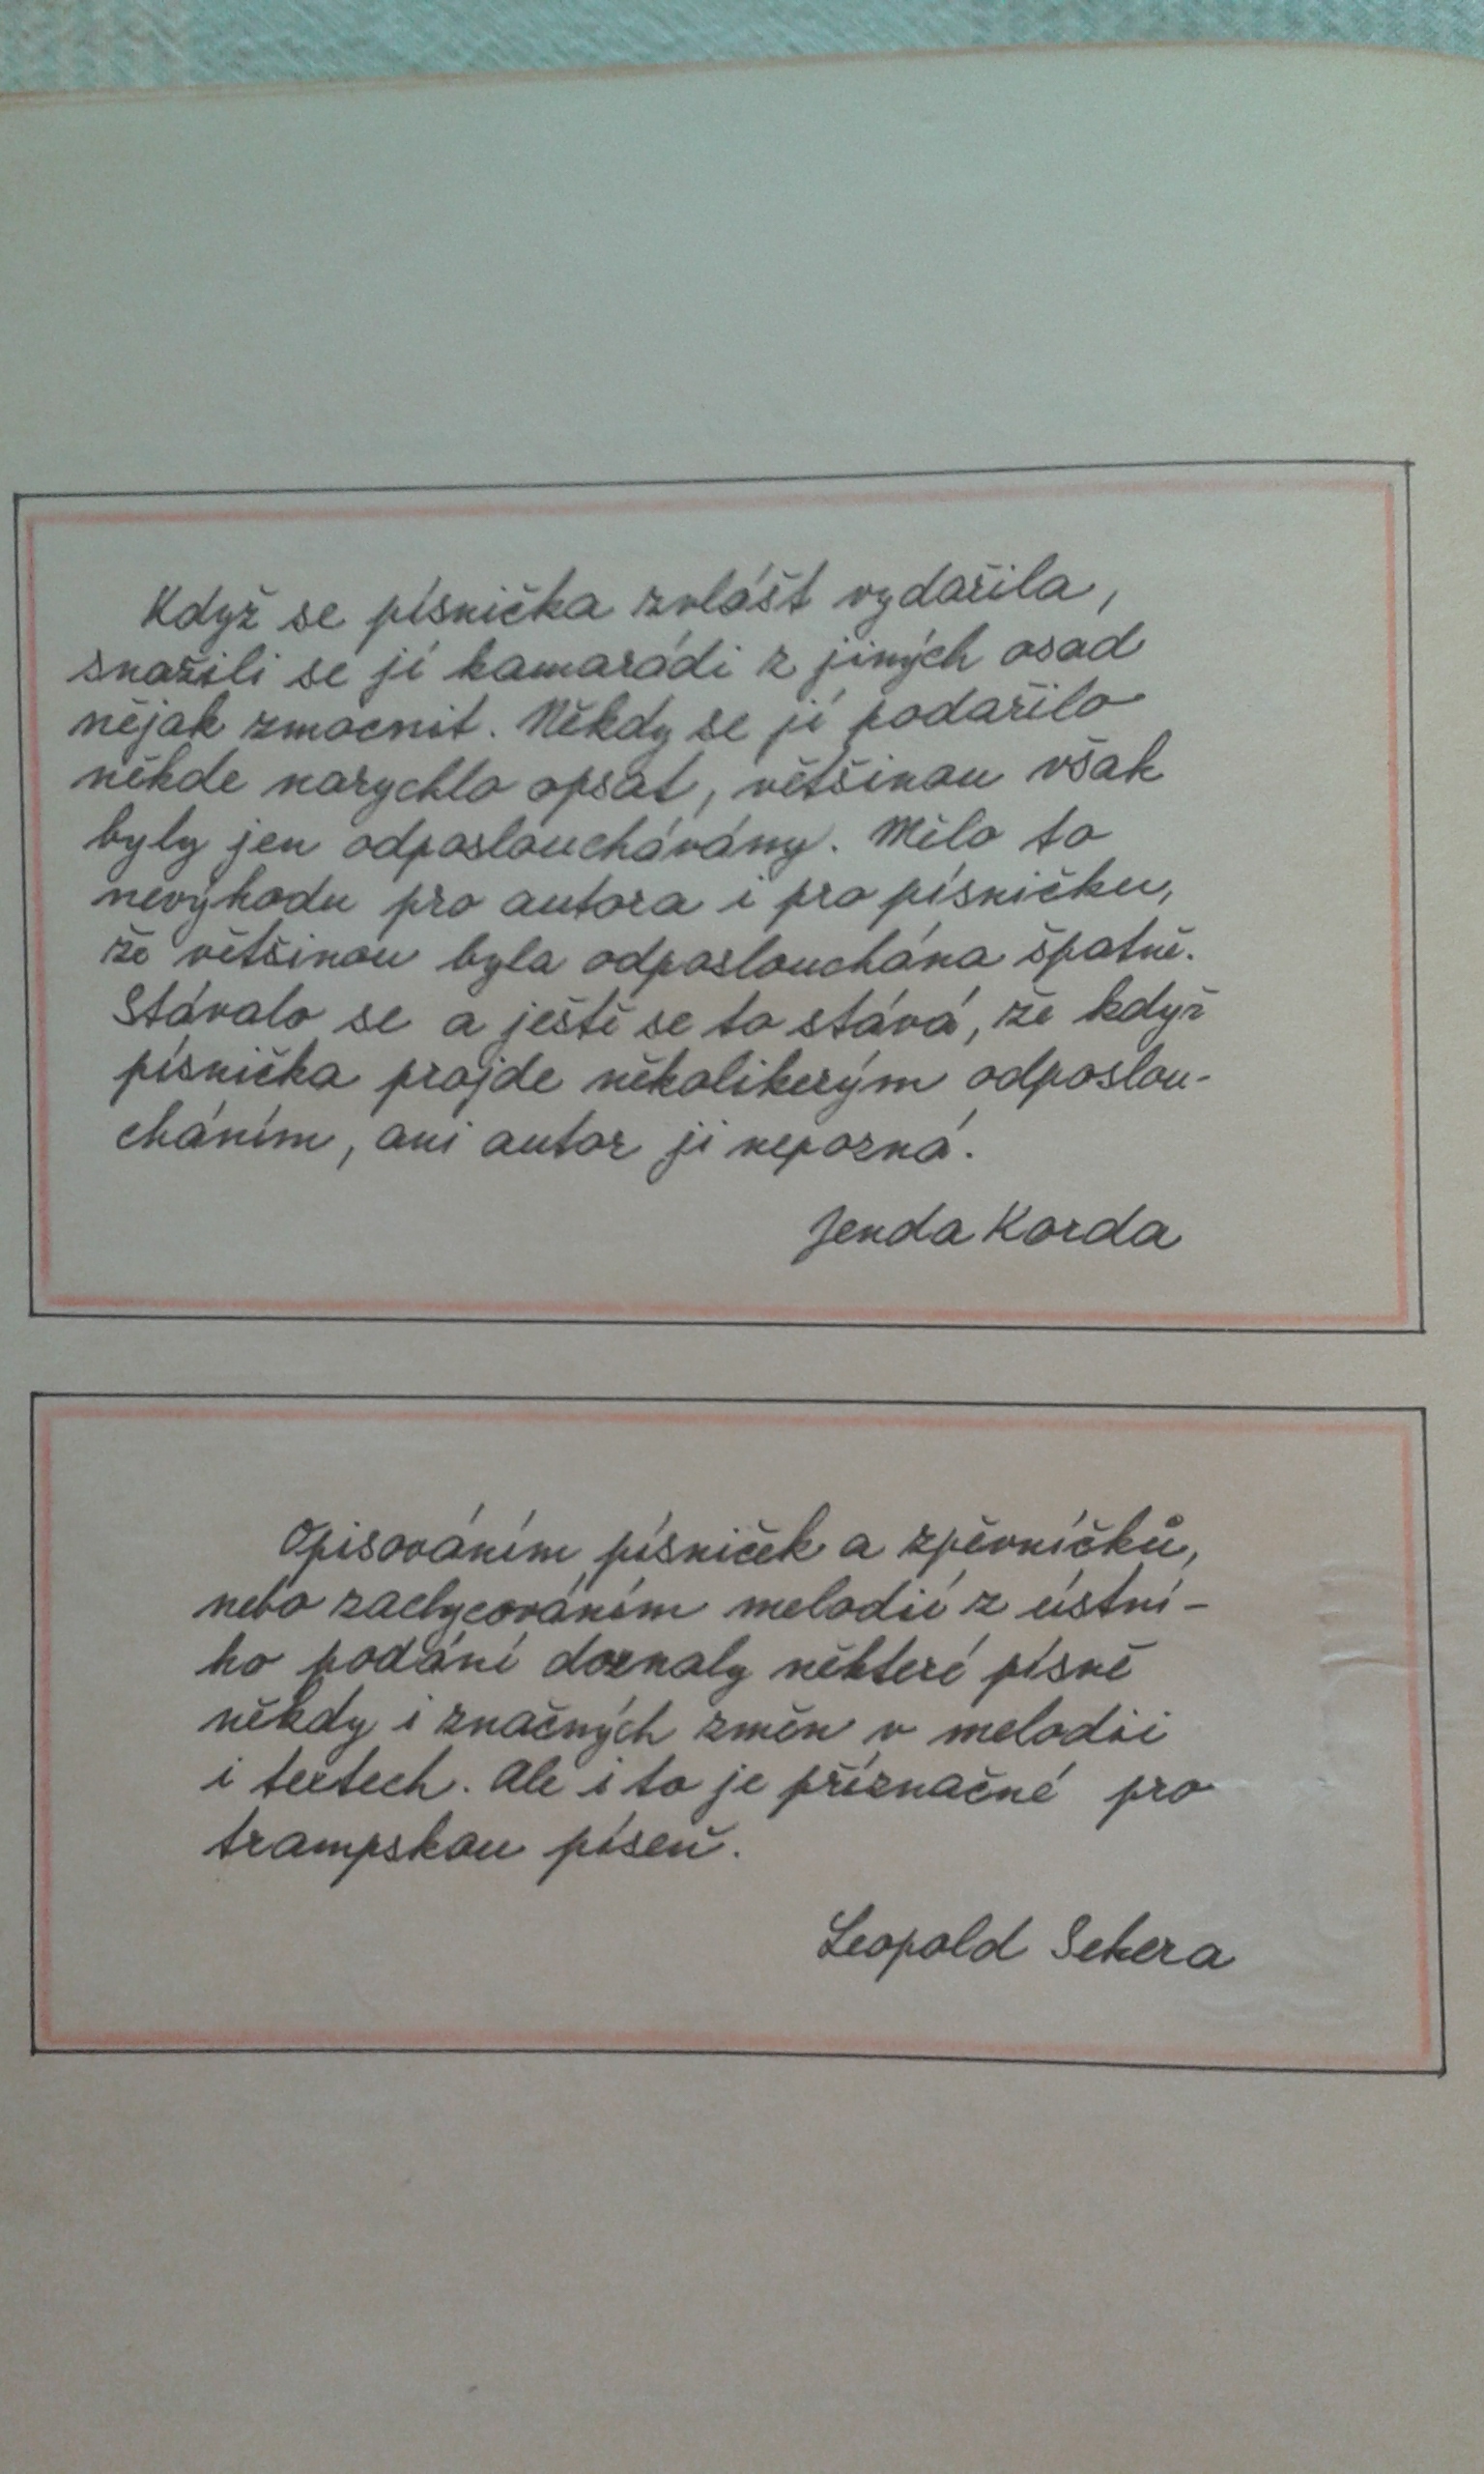 Když se písnička zvlášt vydařila,
snažili se jí kamarádi z jiných osad
nějak zmocnit. Někdy se jí podařilo
někde narychlo opsat, většinou však
byly jen odposlouchávány. Mělo to
nevýhodu pro autora i pro písničku,
že většinou byla odposlouchána špatně.
Stávalo se a ještě se to stává, že když
písnička projde několikerým odposlou-
cháním, ani autor ji nepozná.
Jenda Korda
Opisováním písniček a zpěvníčků,
nebo zachycováním melodií z ústní-
ho podání doznaly některé písně
někdy i značných změn v melodii
i textech. Ale i to je příznačné pro
trampskou píseň.
Leopold Sekera